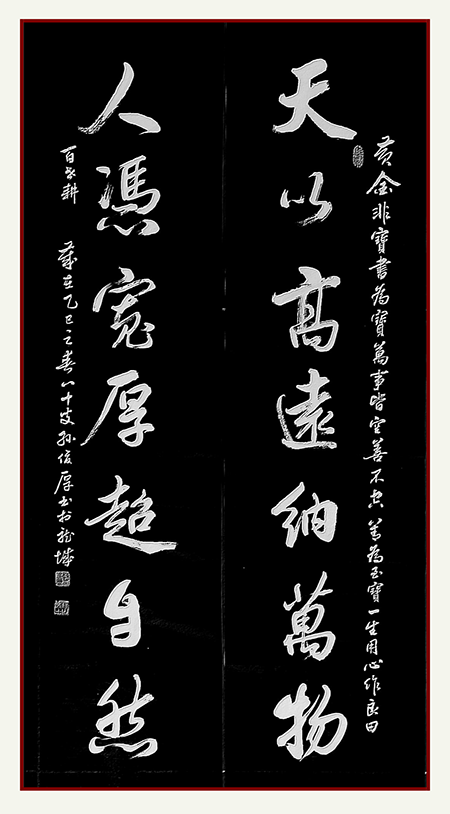 天以高遠納萬物
人憑寬厚超自然
黄金非寶書為寶萬事皆空善不空 善為至寶一生用心作良田
百世耕 歲在乙巳之春八十叟孫俊厚書於龍城